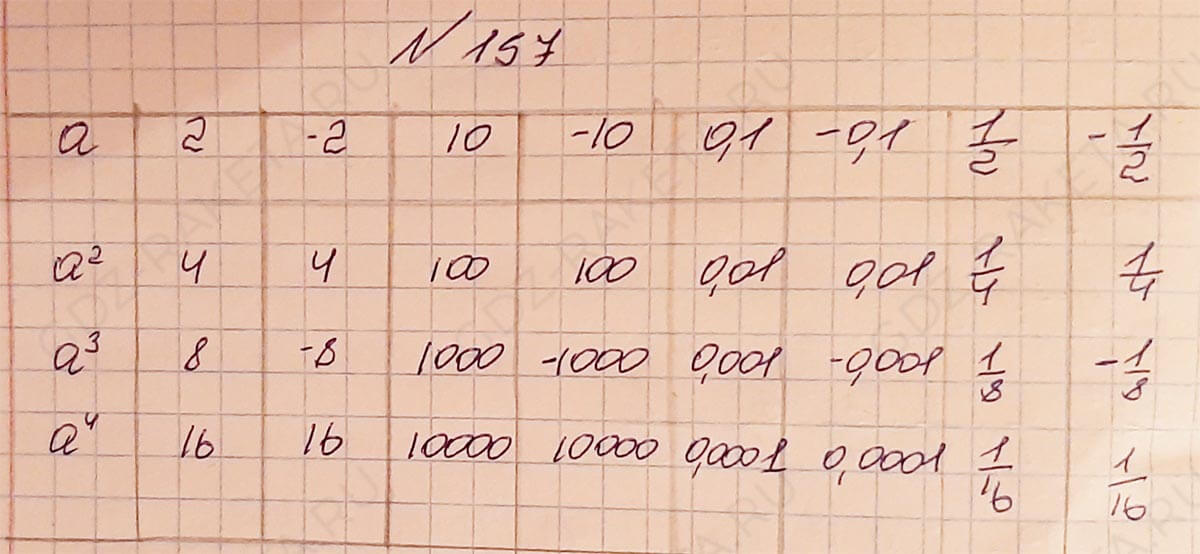 N 157
a 2 -2 10 -10 0,1 -0,1 1/2 -1/2
a² 4 4 100 100 0,01 0,01 1/4 1/4
a³ 8 -8 1000 -1000 0,001 -0,001 1/8 -1/8
a⁴ 16 16 10000 10000 0,0001 0,0001 1/16 1/16
GDZ-RAKETA.RU